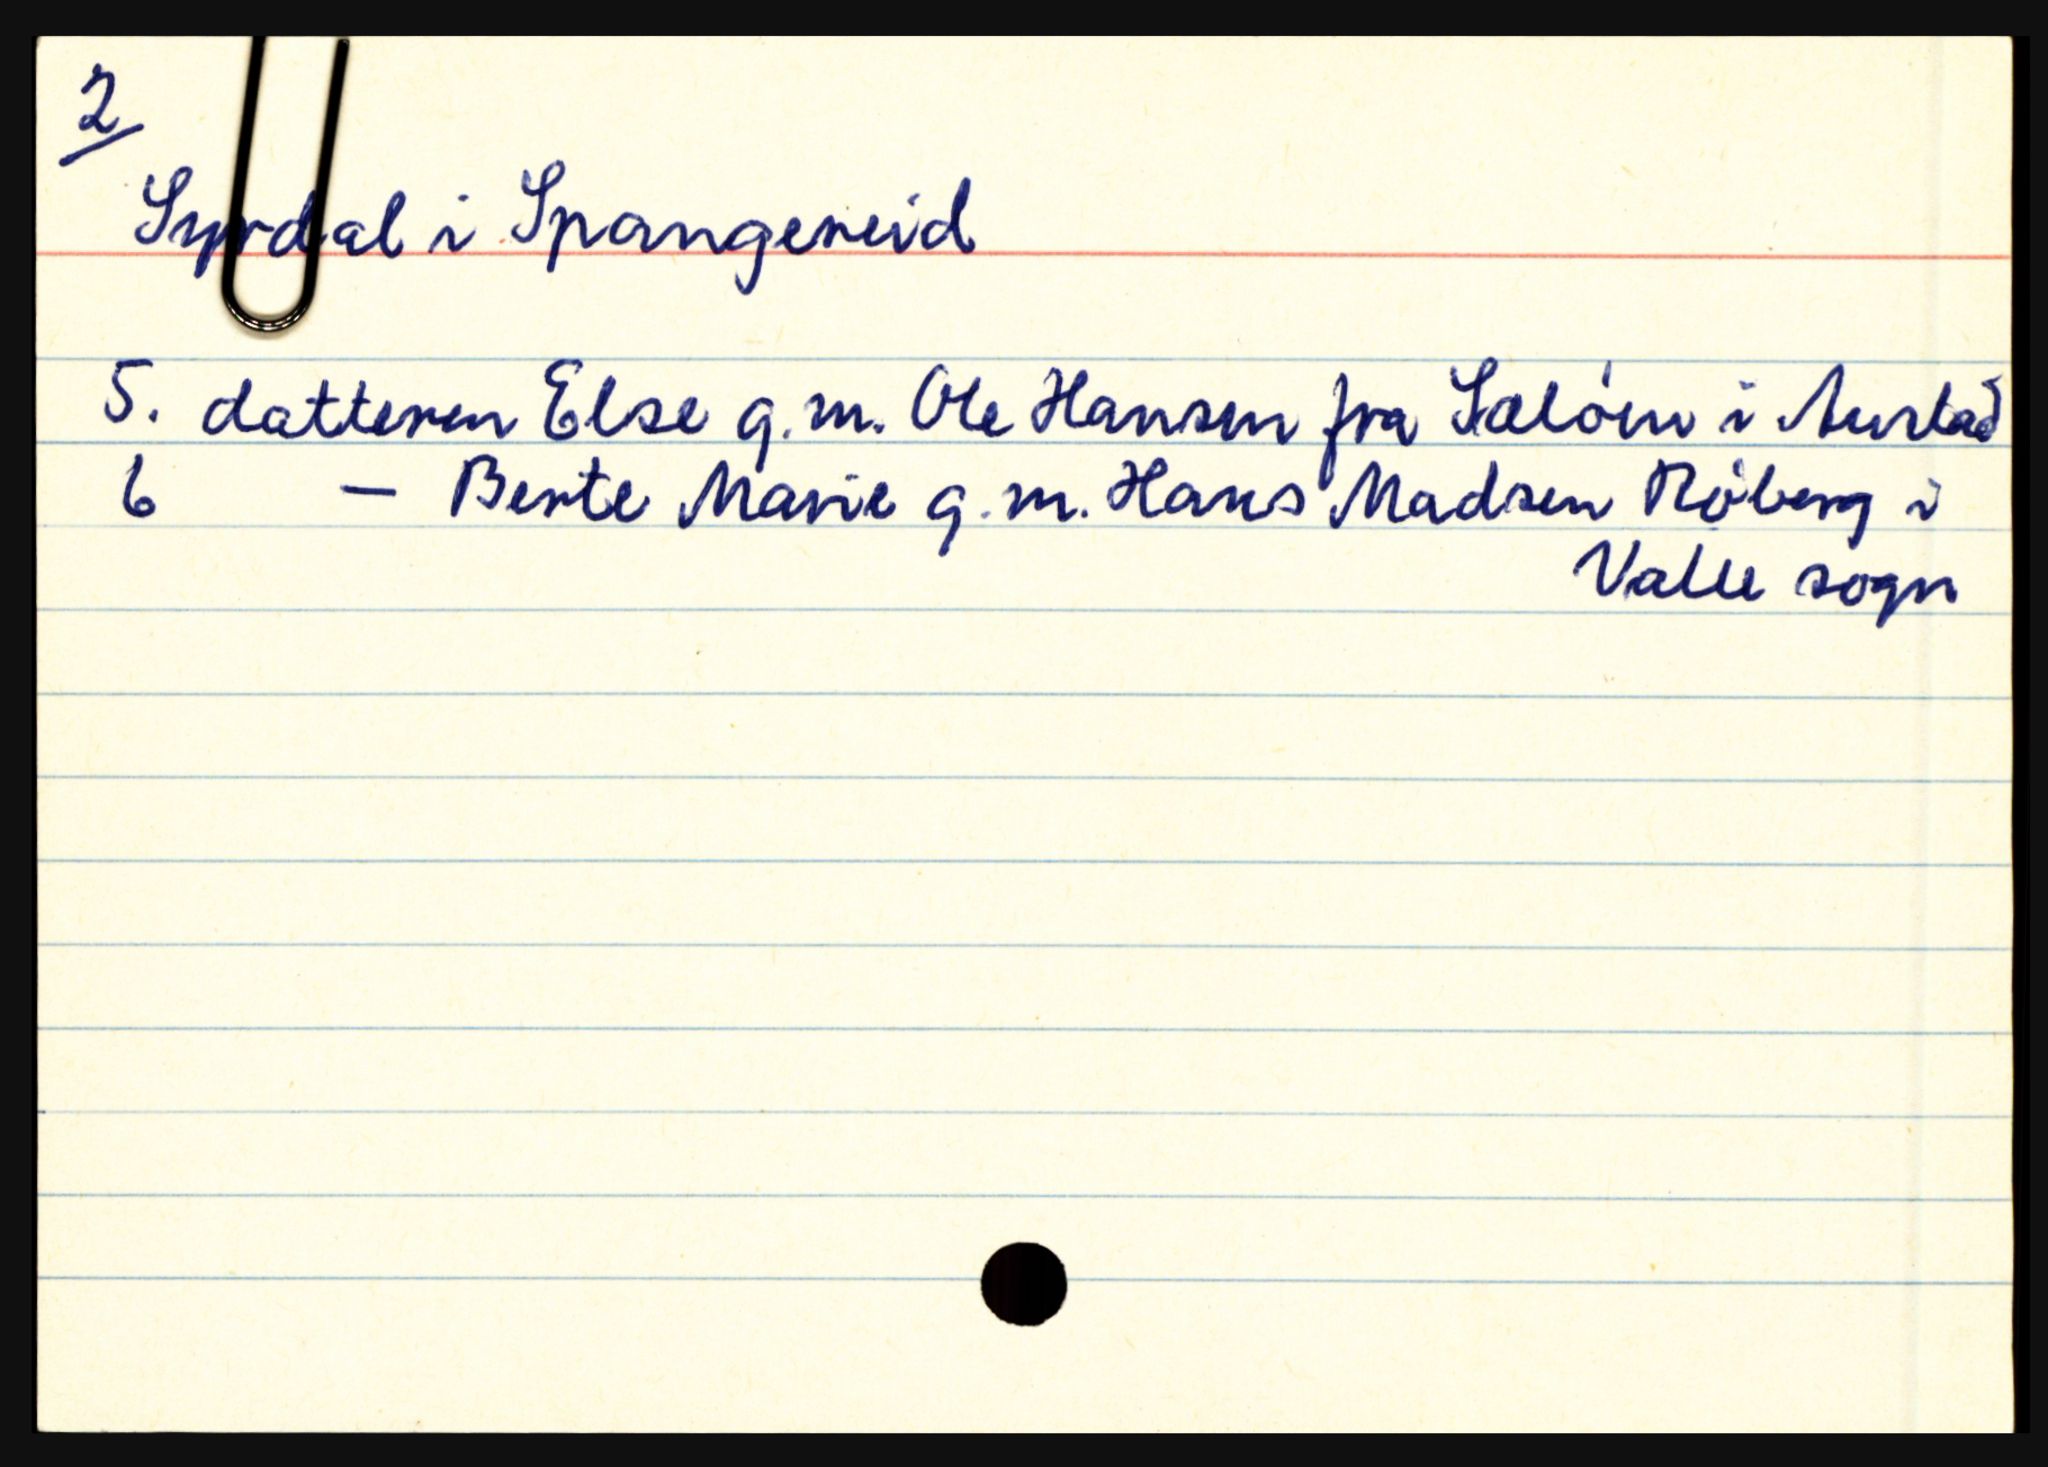 2
Syrdal i Spangereid
5. datteren Else g.m. Ole Hansen fra Sæløen i Austad
6 — Berte Marie g.m. Hans Madsen Røberg i
Valle sogn